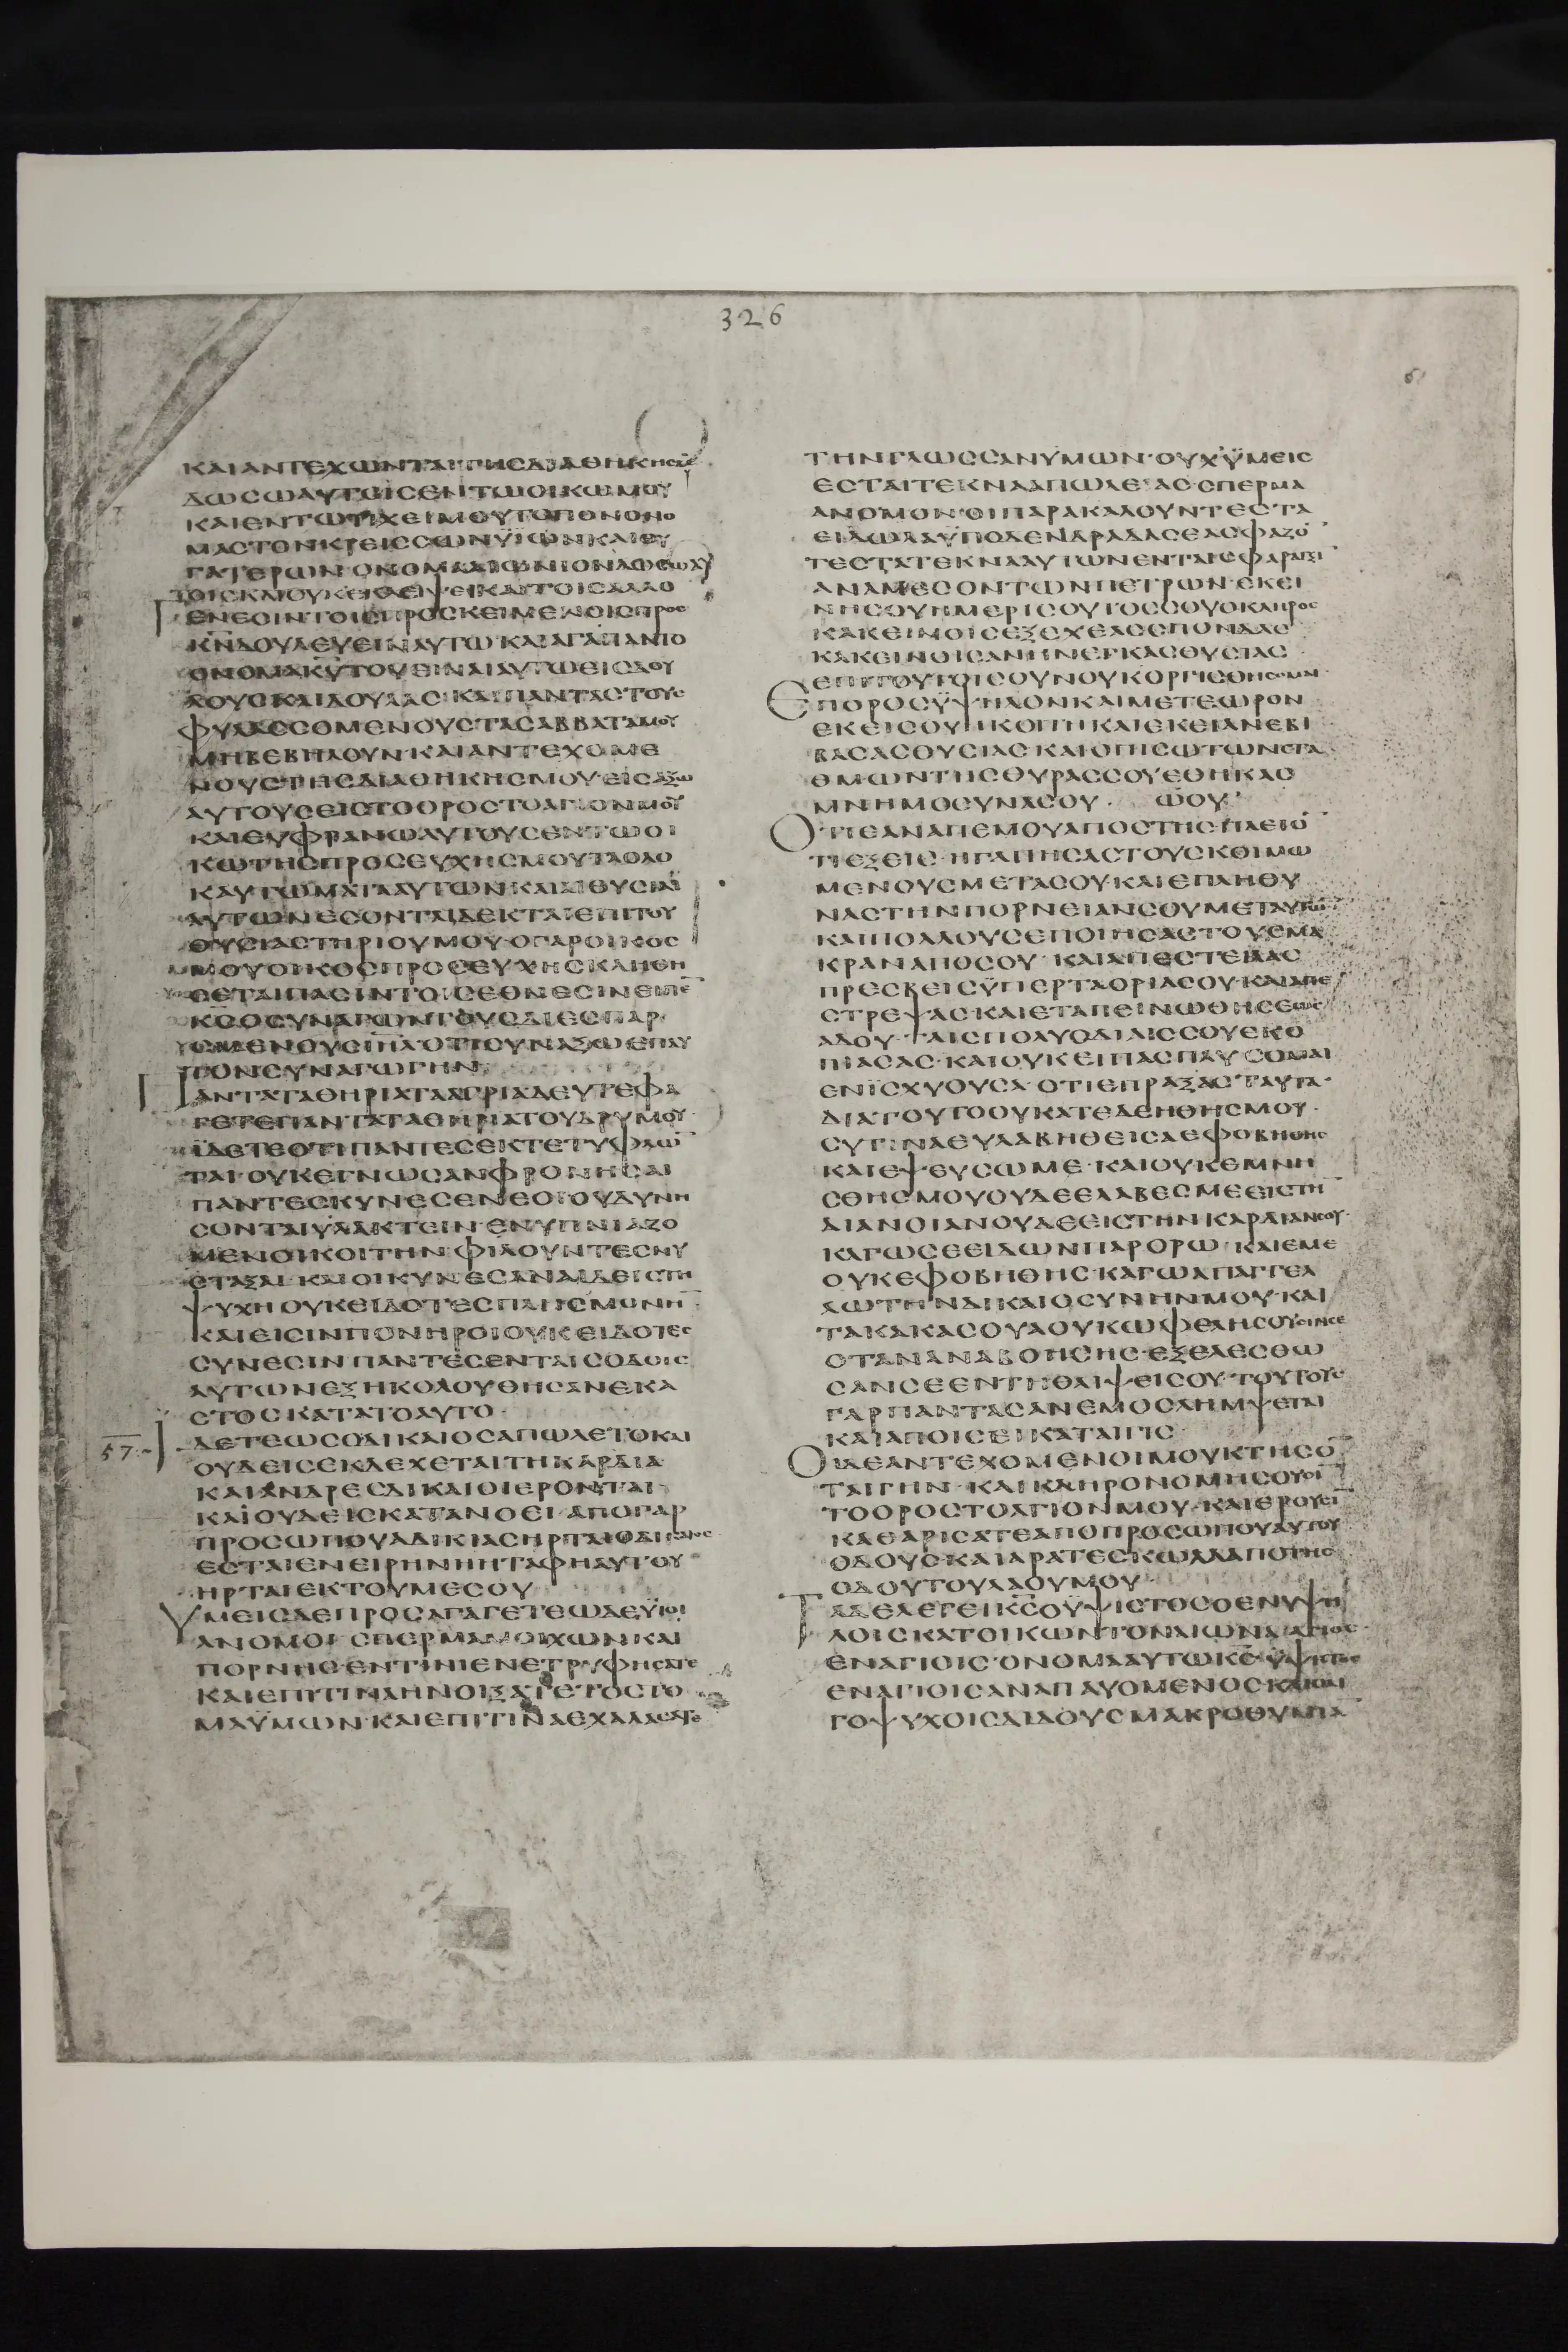 326
ΚΑΙΑΝΤΕΧΩΝΤΑΙΤΗCΔΙΑΘΗΚΗC
ΔΩCΩΑΥΤΟΙCΕΝΤΩΟΙΚΩΜΟΥ
ΚΑΙΕΝΤΩΤΙΧΕΙΜΟΥΤΟΠΟΝΟΝΟ
ΜΑCΤΟΝΚΡΕΙCCΩΝΥΙΩΝΚΑΙΘΥ
ΓΑΤΕΡΩΝ·ΟΝΟΜΑΑΙΩΝΙΟΝΔΩCΩΑΥ
ΤΟΙCΚΑΙΟΥΚΕΚΛΕΙΨΕΙΚΑΙΤΟΙCΑΛΛΟ
ΓΕΝΕCΙΝΤΟΙCΠΡΟCΚΕΙΜΕΝΟΙCΠΡΟC
Κ̅Ν̅ΔΟΥΛΕΥΕΙΝΑΥΤΩΚΑΙΑΓΑΠΑΝΤΟ
ΟΝΟΜΑΚ̅Υ̅ΤΟΥΕΙΝΑΙΑΥΤΩΕΙCΔΟΥ
ΛΟΥCΚΑΙΔΟΥΛΑC·ΚΑΙΠΑΝΤΑCΤΟΥC
ΦΥΛΑCCΟΜΕΝΟΥCΤΑCΑΒΒΑΤΑΜΟΥ
ΜΗΒΕΒΗΛΟΥΝ·ΚΑΙΑΝΤΕΧΟΜΕ
ΝΟΥCΤΗCΔΙΑΘΗΚΗCΜΟΥ·ΕΙCΑΞΩ
ΑΥΤΟΥCΕΙCΤΟΟΡΟCΤΟΑΓΙΟΝΜΟΥ
ΚΑΙΕΥΦΡΑΝΩΑΥΤΟΥCΕΝΤΩΟΙ
ΚΩΤΗCΠΡΟCΕΥΧΗCΜΟΥΤΑΟΛΟ
ΚΑΥΤΩΜΑΤΑΑΥΤΩΝΚΑΙΑΙΘΥCΙΑΙ
ΑΥΤΩΝΕCΟΝΤΑΙΔΕΚΤΑΙΕΠΙΤΟΥ
ΘΥCΙΑCΤΗΡΙΟΥΜΟΥ·ΟΓΑΡΟΙΚΟC
ΜΟΥΟΙΚΟCΠΡΟCΕΥΧΗCΚΛΗΘΗ
CΕΤΑΙΠΑCΙΝΤΟΙCΕΘΝΕCΙΝ
ΑΝΤΑΤΑΘΗΡΙΑΤΑΑΓΡΙΑΔΕΥΤΕΦΑ
ΓΕΤΕΠΑΝΤΑΤΑΘΗΡΙΑΤΟΥΔΡΥΜΟΥ
ΙΔΕΤΕΟΤΙΠΑΝΤΕCΕΚΤΕΤΥΦΛΩ̅
ΤΑΙ·ΟΥΚΕΓΝΩCΑΝΦΡΟΝΗCΑΙ
ΠΑΝΤΕCΚΥΝΕCΕΝΕΟΙΟΥΔΥΝΗ
CΟΝΤΑΙΥΛΑΚΤΕΙΝ·ΕΝΥΠΝΙΑΖΟ
ΜΕΝΟΙΚΟΙΤΗΝ·ΦΙΛΟΥΝΤΕCΝΥ
CΤΑΞΑΙ·ΚΑΙΟΙΚΥΝΕCΑΝΑΙΔΕΙCΤΗ
ΨΥΧΗΟΥΚΕΙΔΟΤΕCΠΛΗCΜΟΝΗ̅
ΚΑΙΕΙCΙΝΠΟΝΗΡΟΙΟΥΚΕΙΔΟΤΕC
CΥΝΕCΙΝ·ΠΑΝΤΕCΕΝΤΑΙCΟΔΟΙC
ΑΥΤΩΝΕΞΗΚΟΛΟΥΘΗCΑΝΕΚΑ
CΤΟCΚΑΤΑΤΟΑΥΤΟ·
57 ΔΕΤΕΩCΟΔΙΚΑΙΟCΑΠΩΛΕΤΟΚΑΙ
ΟΥΔΕΙCΕΚΔΕΧΕΤΑΙΤΗΚΑΡΔΙΑ
ΚΑΙΑΝΔΡΕCΔΙΚΑΙΟΙΕΡΟΝΤΑΙ·
ΚΑΙΟΥΔΕΙCΚΑΤΑΝΟΕΙ·ΑΠΟΓΑΡ
ΠΡΟCΩΠΟΥΑΔΙΚΙΑCΗΡΤΑΙΟΔΙΚΑΙΟC
ΕCΤΑΙΕΝΕΙΡΗΝΗΗΤΑΦΗΑΥΤΟΥ
ΗΡΤΑΙΕΚΤΟΥΜΕCΟΥ
ΥΜΕΙCΔΕΠΡΟCΑΓΑΓΕΤΕΩΔΕΥΪΟΙ
ΑΝΟΜΟΙ·CΠΕΡΜΑΜΟΙΧΩΝΚΑΙ
ΠΟΡΝΗC·ΕΝΤΙΝΙΕΝΕΤΡΥΦΗCΑΤΕ
ΚΑΙΕΠΙΤΙΝΑΗΝΟΙΞΑΤΕΤΟCΤΟ
ΜΑΥΜΩΝ·ΚΑΙΕΠΙΤΙΝΑΕΧΑΛΑCΑΤΕ
ΤΗΝΓΛΩCCΑΝΥΜΩΝ·ΟΥΧΥΜΕΙC
ΕCΤΑΙΤΕΚΝΑΑΠΩΛΕΙΑC·CΠΕΡΜΑ
ΑΝΟΜΟΝ·ΟΙΠΑΡΑΚΑΛΟΥΝΤΕCΤΑ
ΕΙΔΩΛΑΥΠΟΔΕΝΔΡΑΔΑCΕΑCΦΑΖΟ̅
ΤΕCΤΑΤΕΚΝΑΑΥΤΩΝΕΝΤΑΙCΦΑΡΑΓΞΙ
ΑΝΑΜΕCΟΝΤΩΝΠΕΤΡΩΝ·ΕΚΕΙ
ΝΗCΟΥΗΜΕΡΙCΟΥΤΟCCΟΥΟΚΛΗΡΟC
ΚΑΚΕΙΝΟΙCΕΞΕΧΕΑCCΠΟΝΔΑC
ΚΑΚΕΙΝΟΙCΑΝΗΝΕΓΚΑCΘΥCΙΑC
ΕΠΙΤΟΥΤΟΙCΟΥΝΟΥΚΟΡΓΙCΘΗCΟΜΑΙ
ΕΠΟΡΟCΥΨΗΛΟΝΚΑΙΜΕΤΕΩΡΟΝ
ΕΚΕΙCΟΥΗΚΟΙΤΗΚΑΙΕΚΕΙΑΝΕΒΙ
ΒΑCΑCΘΥCΙΑC·ΚΑΙΟΠΙCΩΤΩΝCΤΑ
ΘΜΩΝΤΗCΘΥΡΑCCΟΥΕΘΗΚΑC
ΜΝΗΜΟCΥΝΑCΟΥ·
ΟΤΙΕΑΝΑΠΕΜΟΥΑΠΟCΤΗCΠΛΕΙΟ̅
ΤΙΕΞΕΙC·ΗΓΑΠΗCΑCΤΟΥCΚΟΙΜΩ
ΜΕΝΟΥCΜΕΤΑCΟΥ·ΚΑΙΕΠΛΗΘΥ
ΝΑCΤΗΝΠΟΡΝΕΙΑΝCΟΥΜΕΤΑΥΤΩ̅
ΚΑΙΠΟΛΛΟΥCΕΠΟΙΗCΑCΤΟΥCΜΑ
ΚΡΑΝΑΠΟCΟΥ·ΚΑΙΑΠΕCΤΕΙΛΑC
ΠΡΕCΒΕΙCΥΠΕΡΤΑΟΡΙΑCΟΥ·ΚΑΙΑΠΕ
CΤΡΕΨΑC·ΚΑΙΕΤΑΠΕΙΝΩΘΗCΕΩC
ΑΔΟΥ·ΤΑΙCΠΟΛΥΟΔΙΑΙCCΟΥΕΚΟ
ΠΙΑCΑC·ΚΑΙΟΥΚΕΙΠΑCΠΑΥCΟΜΑΙ
ΕΝΙCΧΥΟΥCΑ·ΟΤΙΕΠΡΑΞΑCΤΑΥΤΑ·
ΔΙΑΤΟΥΤΟΟΥΚΑΤΕΔΕΗΘΗCΜΟΥ·
CΥΤΙΝΑΕΥΛΑΒΗΘΕΙCΑΕΦΟΒΗΘΗC
ΚΑΙΕΨΕΥCΩΜΕ·ΚΑΙΟΥΚΕΜΝΗ
CΘΗCΜΟΥΟΥΔΕΕΛΑΒΕCΜΕΕΙCΤΗ̅
ΔΙΑΝΟΙΑΝΟΥΔΕΕΙCΤΗΝΚΑΡΔΙΑΝCΟΥ·
ΚΑΓΩCΕΕΙΔΩΝΠΑΡΟΡΩ·ΚΑΙΕΜΕ
ΟΥΚΕΦΟΒΗΘΗC·ΚΑΓΩΑΠΑΓΓΕΛ
ΛΩΤΗΝΔΙΚΑΙΟCΥΝΗΝΜΟΥ·ΚΑΙ
ΤΑΚΑΚΑCΟΥΑΟΥΚΩΦΕΛΗCΟΥCΙΝCΕ
ΟΤΑΝΑΝΑΒΟΗCΗC·ΕΞΕΛΕCΘΩ
CΑΝCΕΕΝΤΗΘΛΙΨΕΙCΟΥ·ΤΟΥΤΟΥC
ΓΑΡΠΑΝΤΑCΑΝΕΜΟCΛΗΜΨΕΤΑΙ
ΚΑΙΑΠΟΙCΕΙΚΑΤΑΙΓΙC·
ΟΙΔΕΑΝΤΕΧΟΜΕΝΟΙΜΟΥΚΤΗCΟ̅
ΤΑΙΓΗΝ·ΚΑΙΚΛΗΡΟΝΟΜΗCΟΥCΙ̅
ΤΟΟΡΟCΤΟΑΓΙΟΝΜΟΥ·ΚΑΙΕΡΟΥCΙ̅
ΚΑΘΑΡΙCΑΤΕΑΠΟΠΡΟCΩΠΟΥΑΥΤΟΥ
ΟΔΟΥC·ΚΑΙΑΡΑΤΕCΚΩΛΑΑΠΟΤΗC
ΟΔΟΥΤΟΥΛΑΟΥΜΟΥ·
ΤΑΔΕΛΕΓΕΙΚ̅C̅ΟΥΨΙCΤΟCΟΕΝΥΨΗ
ΛΟΙCΚΑΤΟΙΚΩΝΤΟΝΑΙΩΝΑ·ΑΓΙΟC
ΕΝΑΓΙΟΙC·ΟΝΟΜΑΑΥΤΩΚ̅C̅ΥΨΙCΤΟC
ΕΝΑΓΙΟΙCΑΝΑΠΑΥΟΜΕΝΟC·ΚΑΙΟΛΙ
ΓΟΨΥΧΟΙCΔΙΔΟΥCΜΑΚΡΟΘΥΜΙΑ̅